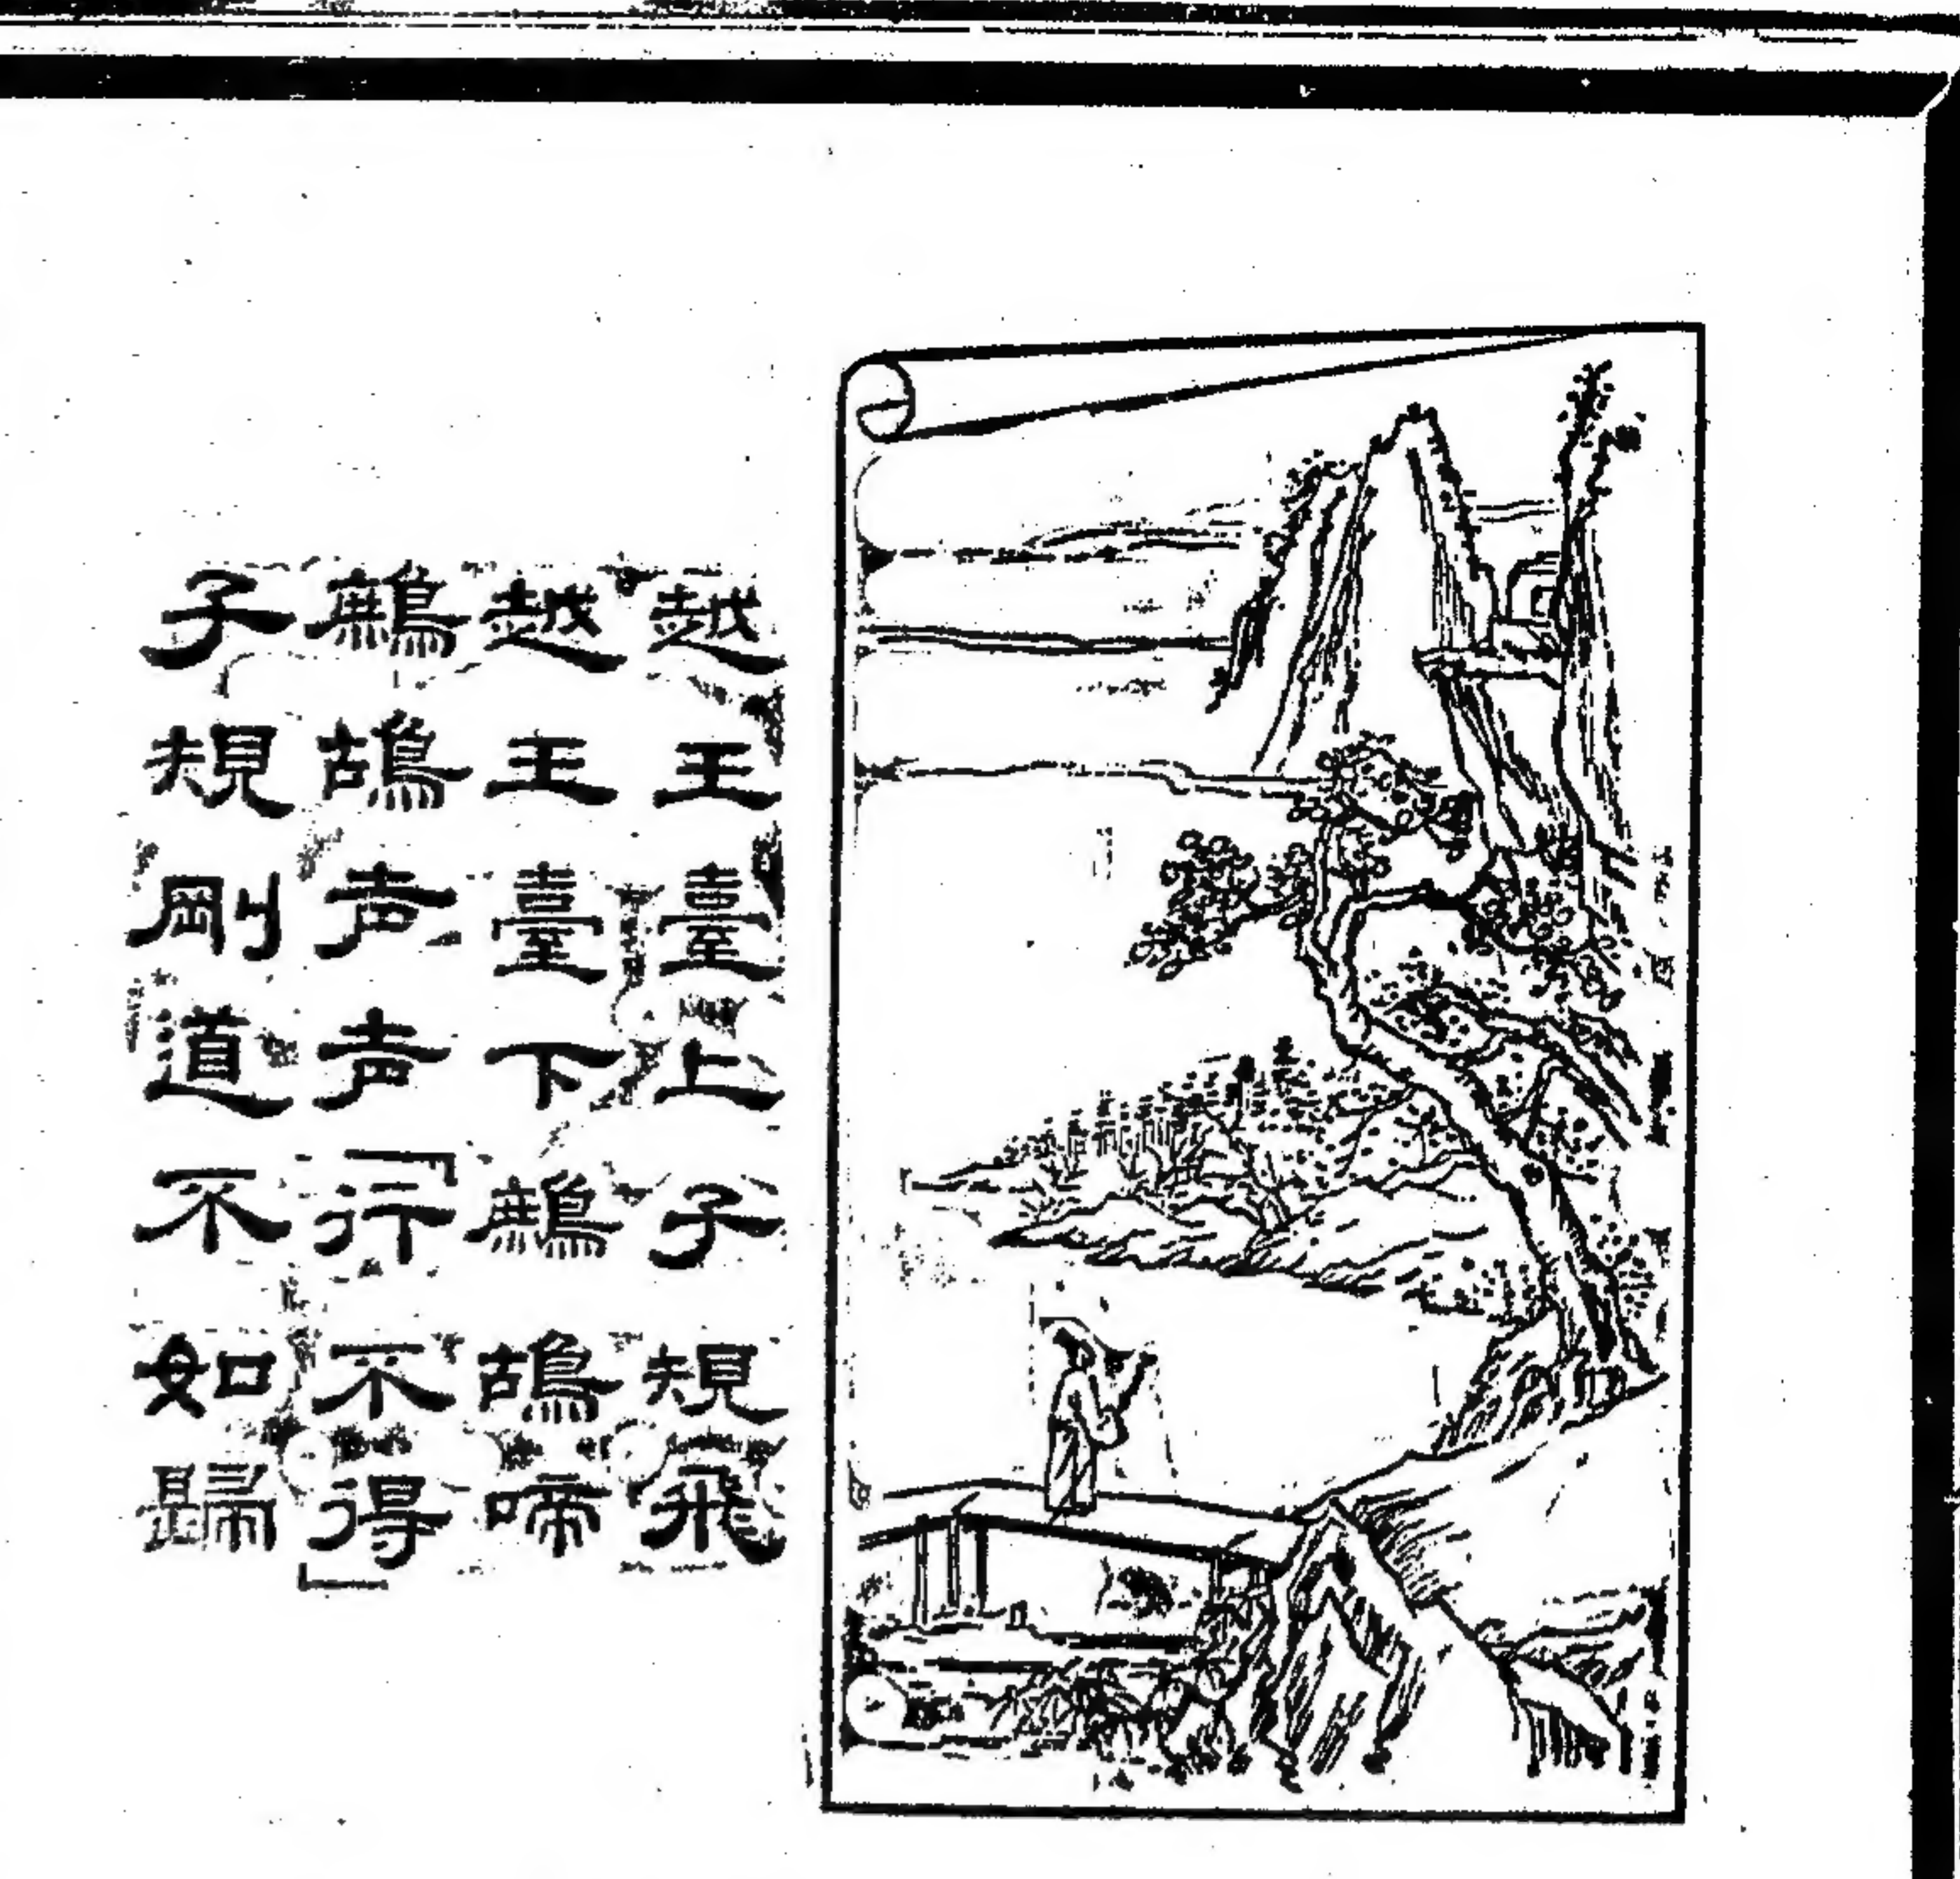 越王臺上子規飛
越王臺下鷓鴣啼
鷓鴣声声行不得
子規剛道不如歸